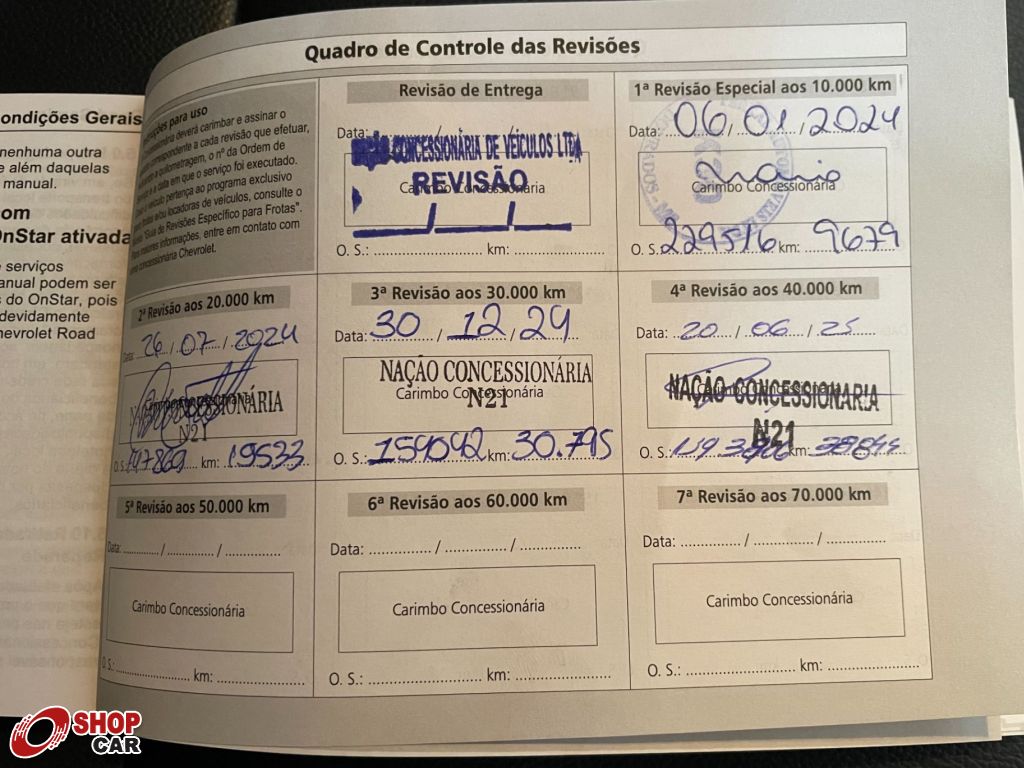 Quadro de Controle das Revisões
ondições Gerais
nenhuma outra
e além daquelas
manual.
com
OnStar ativada
e serviços
anual podem ser
s do OnStar, pois
devidamente
hevrolet Road
para uso
deverá carimbar e assinar o
correspondente a cada revisão que efetuar,
a quilometragem, o nº da Ordem de
e a data em que o serviço foi executado.
veículo pertença ao programa exclusivo
locadoras de veículos, consulte o
"Guia de Revisões Específico para Frotas".
Para maiores informações, entre em contato com
uma concessionária Chevrolet.
Revisão de Entrega
Data:
CONCESSIONÁRIA DE VEÍCULOS LTDA
REVISÃO
Carimbo Concessionária
O. S.: km:
1ª Revisão Especial aos 10.000 km
Data: 06 / 01 / 2024
Carimbo Concessionária
O. S. 229516 km: 9679
2ª Revisão aos 20.000 km
Data: 26 / 07 / 2024
CONCESSIONÁRIA
N21
O. S. km: 19533
3ª Revisão aos 30.000 km
Data: 30 / 12 / 29
NAÇÃO CONCESSIONÁRIA
Carimbo Concessionária
N21
O. S.: 154042 km: 30.795
4ª Revisão aos 40.000 km
Data: 20 / 06 / 25
NAÇÃO CONCESSIONARIA
N21
O. S.: km:
5ª Revisão aos 50.000 km
Data: / /
Carimbo Concessionária
O. S.: km:
6ª Revisão aos 60.000 km
Data: / /
Carimbo Concessionária
O. S.: km:
7ª Revisão aos 70.000 km
Data: / /
Carimbo Concessionária
O. S.: km:
SHOP
CAR